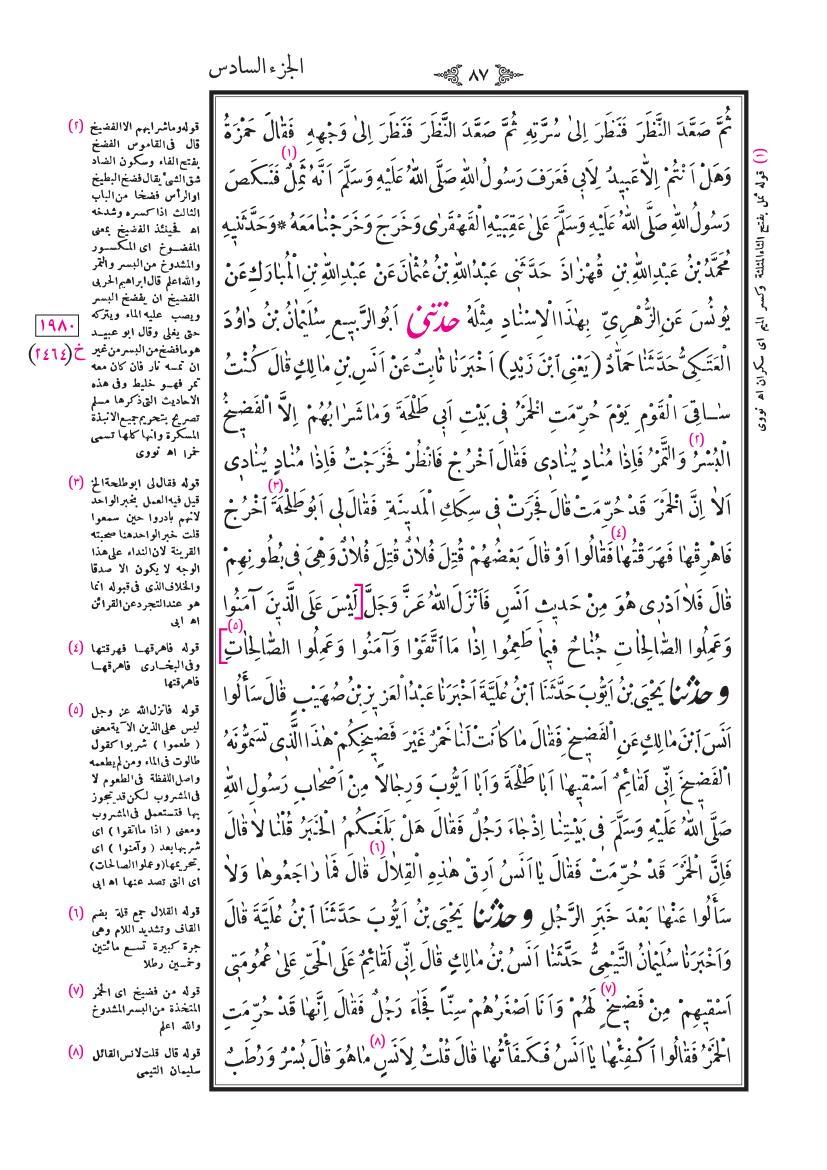 الجزء السادس
٨٧
ثُمَّ صَعَّدَ النَّظَرَ فَنَظَرَ اِلىٰ سُرَّتِهِ ثُمَّ صَعَّدَ النَّظَرَ فَنَظَرَ اِلىٰ وَجْهِهِ فَقٰالَ حَمْزَةُ
وَهَلْ اَنْتُمْ اِلاّٰ عَبيدٌ لِاَبى فَعَرَفَ رَسُولُ اللهِ صَلَّى اللهُ عَلَيْهِ وَسَلَّمَ اَنَّهُ ثَمِلٌ (١) فَنَكَصَ
رَسُولُ اللهِ صَلَّى اللهُ عَلَيْهِ وَسَلَّمَ عَلىٰ عَقِبَيْهِ الْقَهْقَرٰى وَخَرَجَ وَخَرَجْنٰا مَعَهُ * وَحَدَّثَنيهِ
مُحَمَّدُ بْنُ عَبْدِ اللهِ بْنِ قُهْزٰاذَ حَدَّثَنى عَبْدُ اللهِ بْنُ عُثْمٰانَ عَنْ عَبْدِ اللهِ بْنِ الْمُبٰارَكِ عَنْ
يُونُسَ عَنِ الزُّهْرِيِّ بِهٰذَا الْاِسْنٰادِ مِثْلَهُ حَدَّثَنى اَبُو الرَّبيعِ سُلَيْمٰانُ بْنُ دٰاوُدَ
الْعَتَكِيُّ حَدَّثَنٰا حَمّٰادٌ (يَعْنِى ابْنَ زَيْدٍ) اَخْبَرَنٰا ثٰابِتٌ عَنْ اَنَسِ بْنِ مٰالِكٍ قٰالَ كُنْتُ
سٰاقِىَ الْقَوْمِ يَوْمَ حُرِّمَتِ الْخَمْرُ فى بَيْتِ اَبى طَلْحَةَ وَمٰا شَرٰابُهُمْ اِلاَّ الْفَضيخُ
الْبُسْرُ (٢) وَالتَّمْرُ فَاِذٰا مُنٰادٍ يُنٰادى فَقٰالَ اخْرُجْ فَانْظُرْ فَخَرَجْتُ فَاِذٰا مُنٰادٍ يُنٰادى
اَلاٰ اِنَّ الْخَمْرَ قَدْ حُرِّمَتْ قٰالَ فَجَرَتْ فى سِكَكِ الْمَدينَةِ فَقٰالَ لى اَبُو طَلْحَةَ (٣) اخْرُجْ
فَاهْرِقْهٰا فَهَرَقْتُهٰا (٤) فَقٰالُوا اَوْ قٰالَ بَعْضُهُمْ قُتِلَ فُلاٰنٌ قُتِلَ فُلاٰنٌ وَهْىَ فى بُطُونِهِمْ
قٰالَ فَلاٰ اَدْرى هُوَ مِنْ حَديثِ اَنَسٍ فَاَنْزَلَ اللهُ عَزَّ وَجَلَّ [لَيْسَ عَلَى الَّذينَ آمَنُوا
وَعَمِلُوا الصّٰالِحٰاتِ جُنٰاحٌ فيمٰا طَعِمُوا اِذٰا مَا اتَّقَوْا وَآمَنُوا وَعَمِلُوا الصّٰالِحٰاتِ] (٥)
وحدثنا يَحْيَى بْنُ اَيُّوبَ حَدَّثَنَا ابْنُ عُلَيَّةَ اَخْبَرَنٰا عَبْدُ الْعَزيزِ بْنُ صُهَيْبٍ قٰالَ سَأَلُوا
اَنَسَ ابْنَ مٰالِكٍ عَنِ الْفَضيخِ فَقٰالَ مٰا كٰانَتْ لَنٰا خَمْرٌ غَيْرَ فَضيخِكُمْ هٰذَا الَّذى تُسَمُّونَهُ
الْفَضيخَ اِنّى لَقٰائِمٌ اَسْقيهٰا اَبٰا طَلْحَةَ وَاَبٰا اَيُّوبَ وَرِجٰالاً مِنْ اَصْحٰابِ رَسُولِ اللهِ
صَلَّى اللهُ عَلَيْهِ وَسَلَّمَ فى بَيْتِنٰا اِذْ جٰاءَ رَجُلٌ فَقٰالَ هَلْ بَلَغَكُمُ الْخَبَرُ قُلْنٰا لاٰ قٰالَ
فَاِنَّ الْخَمْرَ قَدْ حُرِّمَتْ فَقٰالَ يٰا اَنَسُ اَرِقْ هٰذِهِ الْقِلاٰلَ (٦) قٰالَ فَمٰا رٰاجَعُوهٰا وَلاٰ
سَأَلُوا عَنْهٰا بَعْدَ خَبَرِ الرَّجُلِ وحدثنا يَحْيَى بْنُ اَيُّوبَ حَدَّثَنَا ابْنُ عُلَيَّةَ قٰالَ
وَاَخْبَرَنٰا سُلَيْمٰانُ التَّيْمِىُّ حَدَّثَنٰا اَنَسُ بْنُ مٰالِكٍ قٰالَ اِنّى لَقٰائِمٌ عَلَى الْحَىِّ عَلىٰ عُمُومَتى
اَسْقيهِمْ مِنْ فَضيخٍ (٧) لَهُمْ وَاَنَا اَصْغَرُهُمْ سِنًّا فَجٰاءَ رَجُلٌ فَقٰالَ اِنَّهٰا قَدْ حُرِّمَتِ
الْخَمْرُ فَقٰالُوا اكْفِئْهٰا يٰا اَنَسُ فَكَفَأْتُهٰا قٰالَ قُلْتُ لِاَنَسٍ (٨) مٰا هُوَ قٰالَ بُسْرٌ وَرُطَبٌ
(١) قوله ثمل بفتح الثاء المثلثة وكسر الميم اى سكران اه نووى
(٢) قوله وما شرابهم الا الفضيخ
قال فى القاموس الفضخ
بفتح الفاء وسكون الضاد
شق الشئ يقال فضخ البطيخ
او الرأس فضخا من الباب
الثالث اذا كسره وشدخه
اه فحينئذ الفضيخ بمعنى
المفضوخ اى المكسور
والمشدوخ من البسر والتمر
والله اعلم قال ابراهيم الحربى
الفضيخ ان يفضخ البسر
ويصب عليه الماء ويتركه
حتى يغلى وقال ابو عبيد
هو ما فضخ من البسر من غير
ان تمسه نار فان كان معه
تمر فهو خليط وفى هذه
الاحاديث التى ذكرها مسلم
تصريح بتحريم جميع الانبذة
المسكرة وانها كلها تسمى
خمرا اه نووى
١٩٨٠
خ (٢٤٦٤)
(٣) قوله فقال لى ابو طلحة الخ
قيل فيه العمل بخبر الواحد
لانهم بادروا حين سمعوا
قلت خبر الواحد هنا صحبته
القرينة لان النداء على هذا
الوجه لا يكون الا صدقا
والخلاف الذى فى قبوله انما
هو عند التجرد عن القرائن
اه ابى
(٤) قوله فاهرقها فهرقتها
وفى البخارى فاهرقها
فاهرقتها
(٥) قوله فانزل الله عز وجل
ليس على الذين الآية معنى
( طعموا ) شربوا كقول
طالوت فى الماء ومن لم يطعمه
واصل اللفظة فى الطعوم لا
فى المشروب لكن قد يجوز
بها فتستعمل فى المشروب
ومعنى ( اذا ما اتقوا ) اى
شربها بعد ( وآمنوا ) اى
بتحريمها (وعملوا الصالحات)
اى التى تصد عنها اه ابى
(٦) قوله القلال جمع قلة بضم
القاف وتشديد اللام وهى
جرة كبيرة تسع مائتين
وخمسين رطلا
(٧) قوله من فضيخ اى الخمر
المتخذة من البسر المشدوخ
والله اعلم
(٨) قوله قال قلت لانس القائل
سليمان التيمى